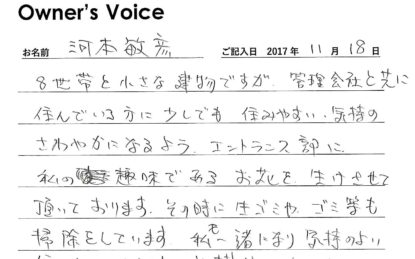 Owner's Voice
お名前 河本敏彦 ご記入日 2017年 11月 18日
8世帯と小さな建物ですが、管理会社と共に
住んでいる方に少しでも 住みやすい、気持の
さわやかになるよう、エントランス部に
私の 趣味である お花を 生けさせて
頂いております。その時に生ゴミや、ゴミ等も
掃除をしています。私も一緒になり気持のよい